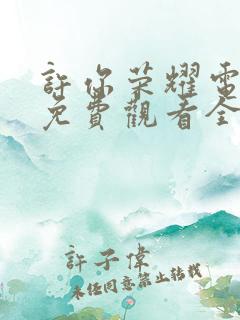 許你荣耀電
免費觀看全
許子偉
未經同意禁止轉載